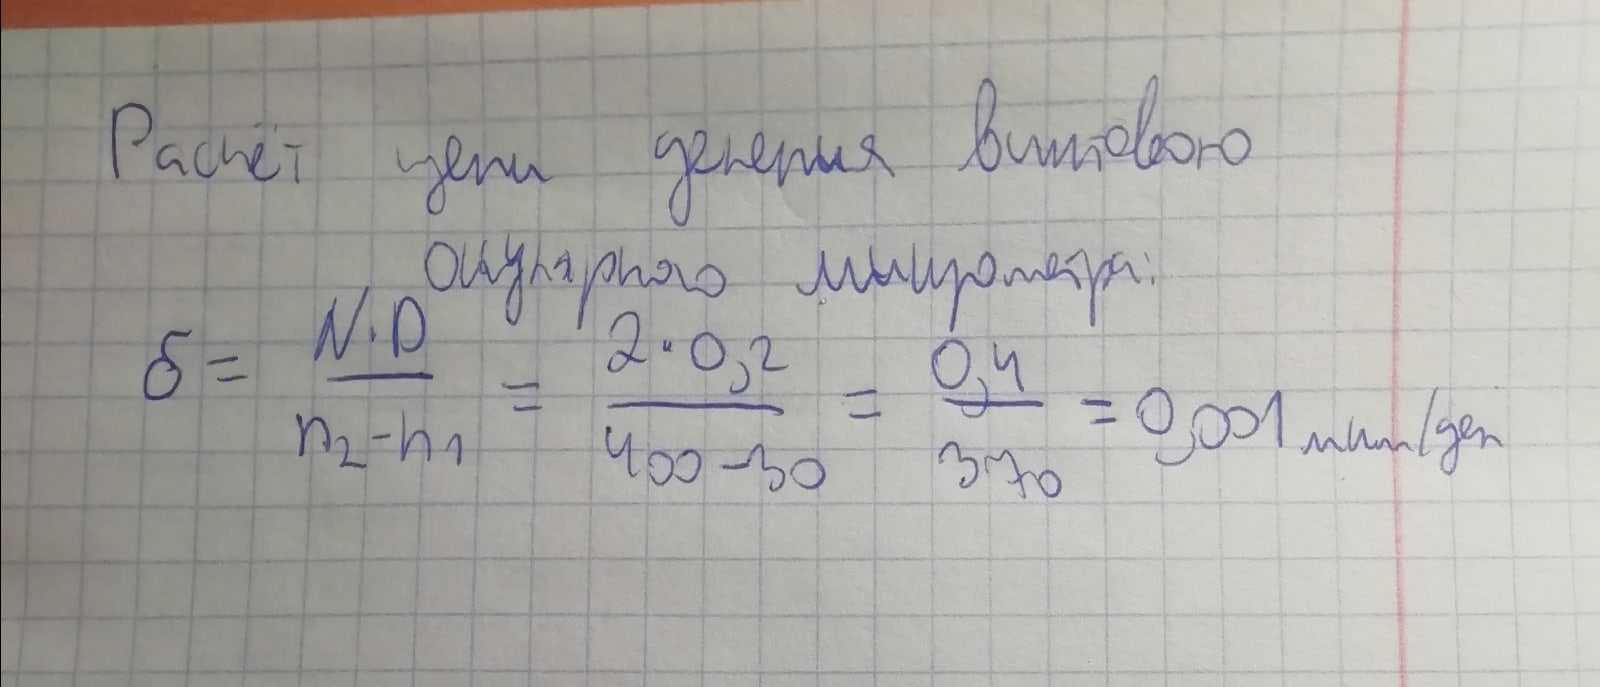 Расчёт цены деления винтового
окулярного микрометра:
δ = N·D / n₂-n₁ = 2·0,2 / 400-30 = 0,4 / 370 = 0,001 мкм/дел